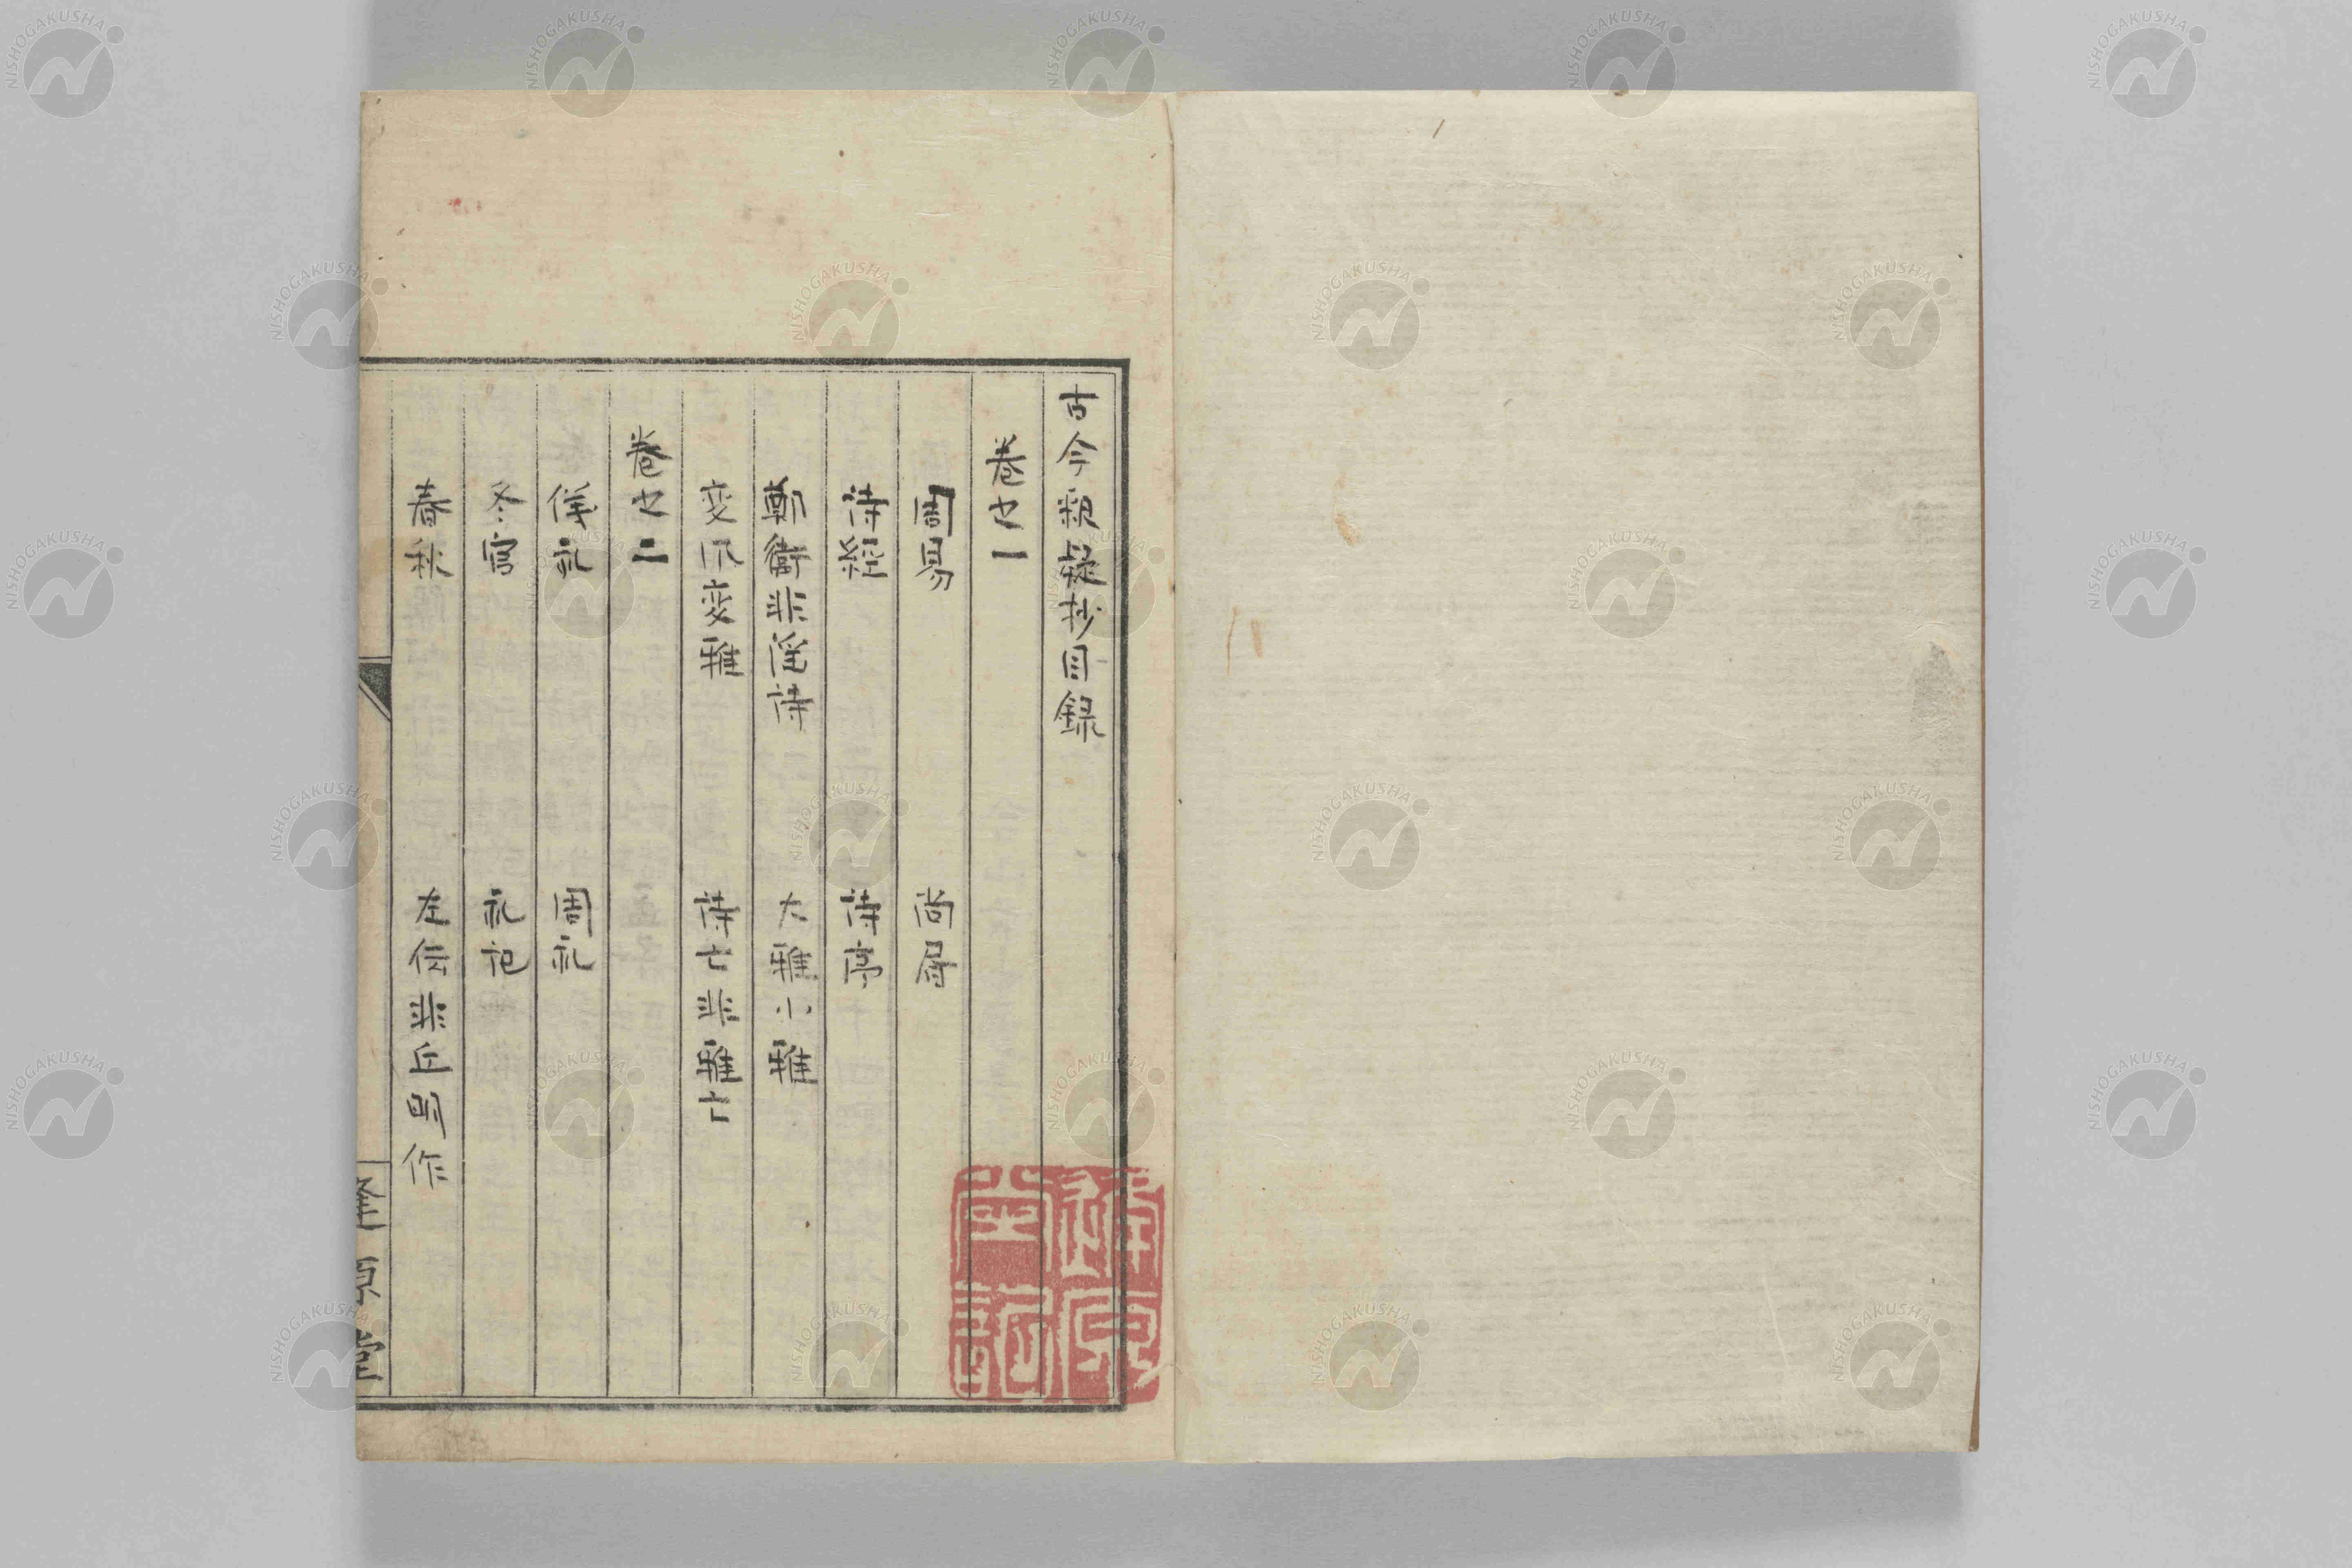 古今釈疑抄目録
巻之一
周易　尚書
詩経　詩序
鄭衛非淫詩　大雅小雅
変风変雅　詩亡非雅亡
巻之二
仪礼　周礼
冬官　礼记
春秋　左伝非丘明作
逢原堂
逢原堂記
NISHOGAKUSHA